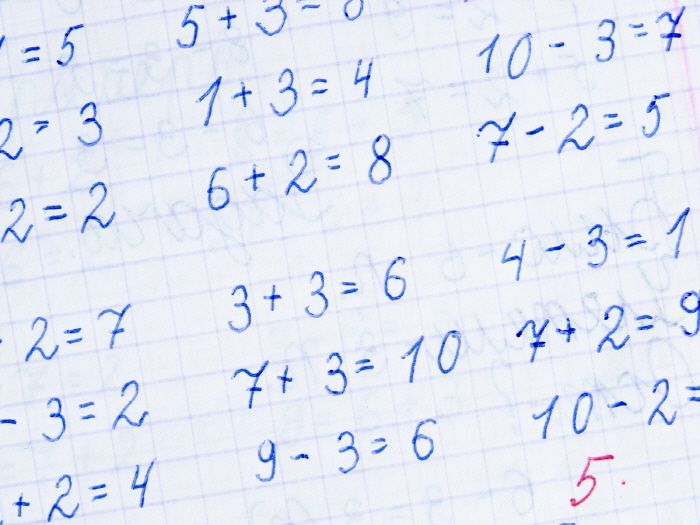 = 5
5 + 3 =
10 - 3 = 7
2 = 3
1 + 3 = 4
7 - 2 = 5
2 = 2
6 + 2 = 8
4 - 3 = 1
2 = 7
3 + 3 = 6
7 + 2 = 9
- 3 = 2
7 + 3 = 10
10 - 2 =
+ 2 = 4
9 - 3 = 6
5.